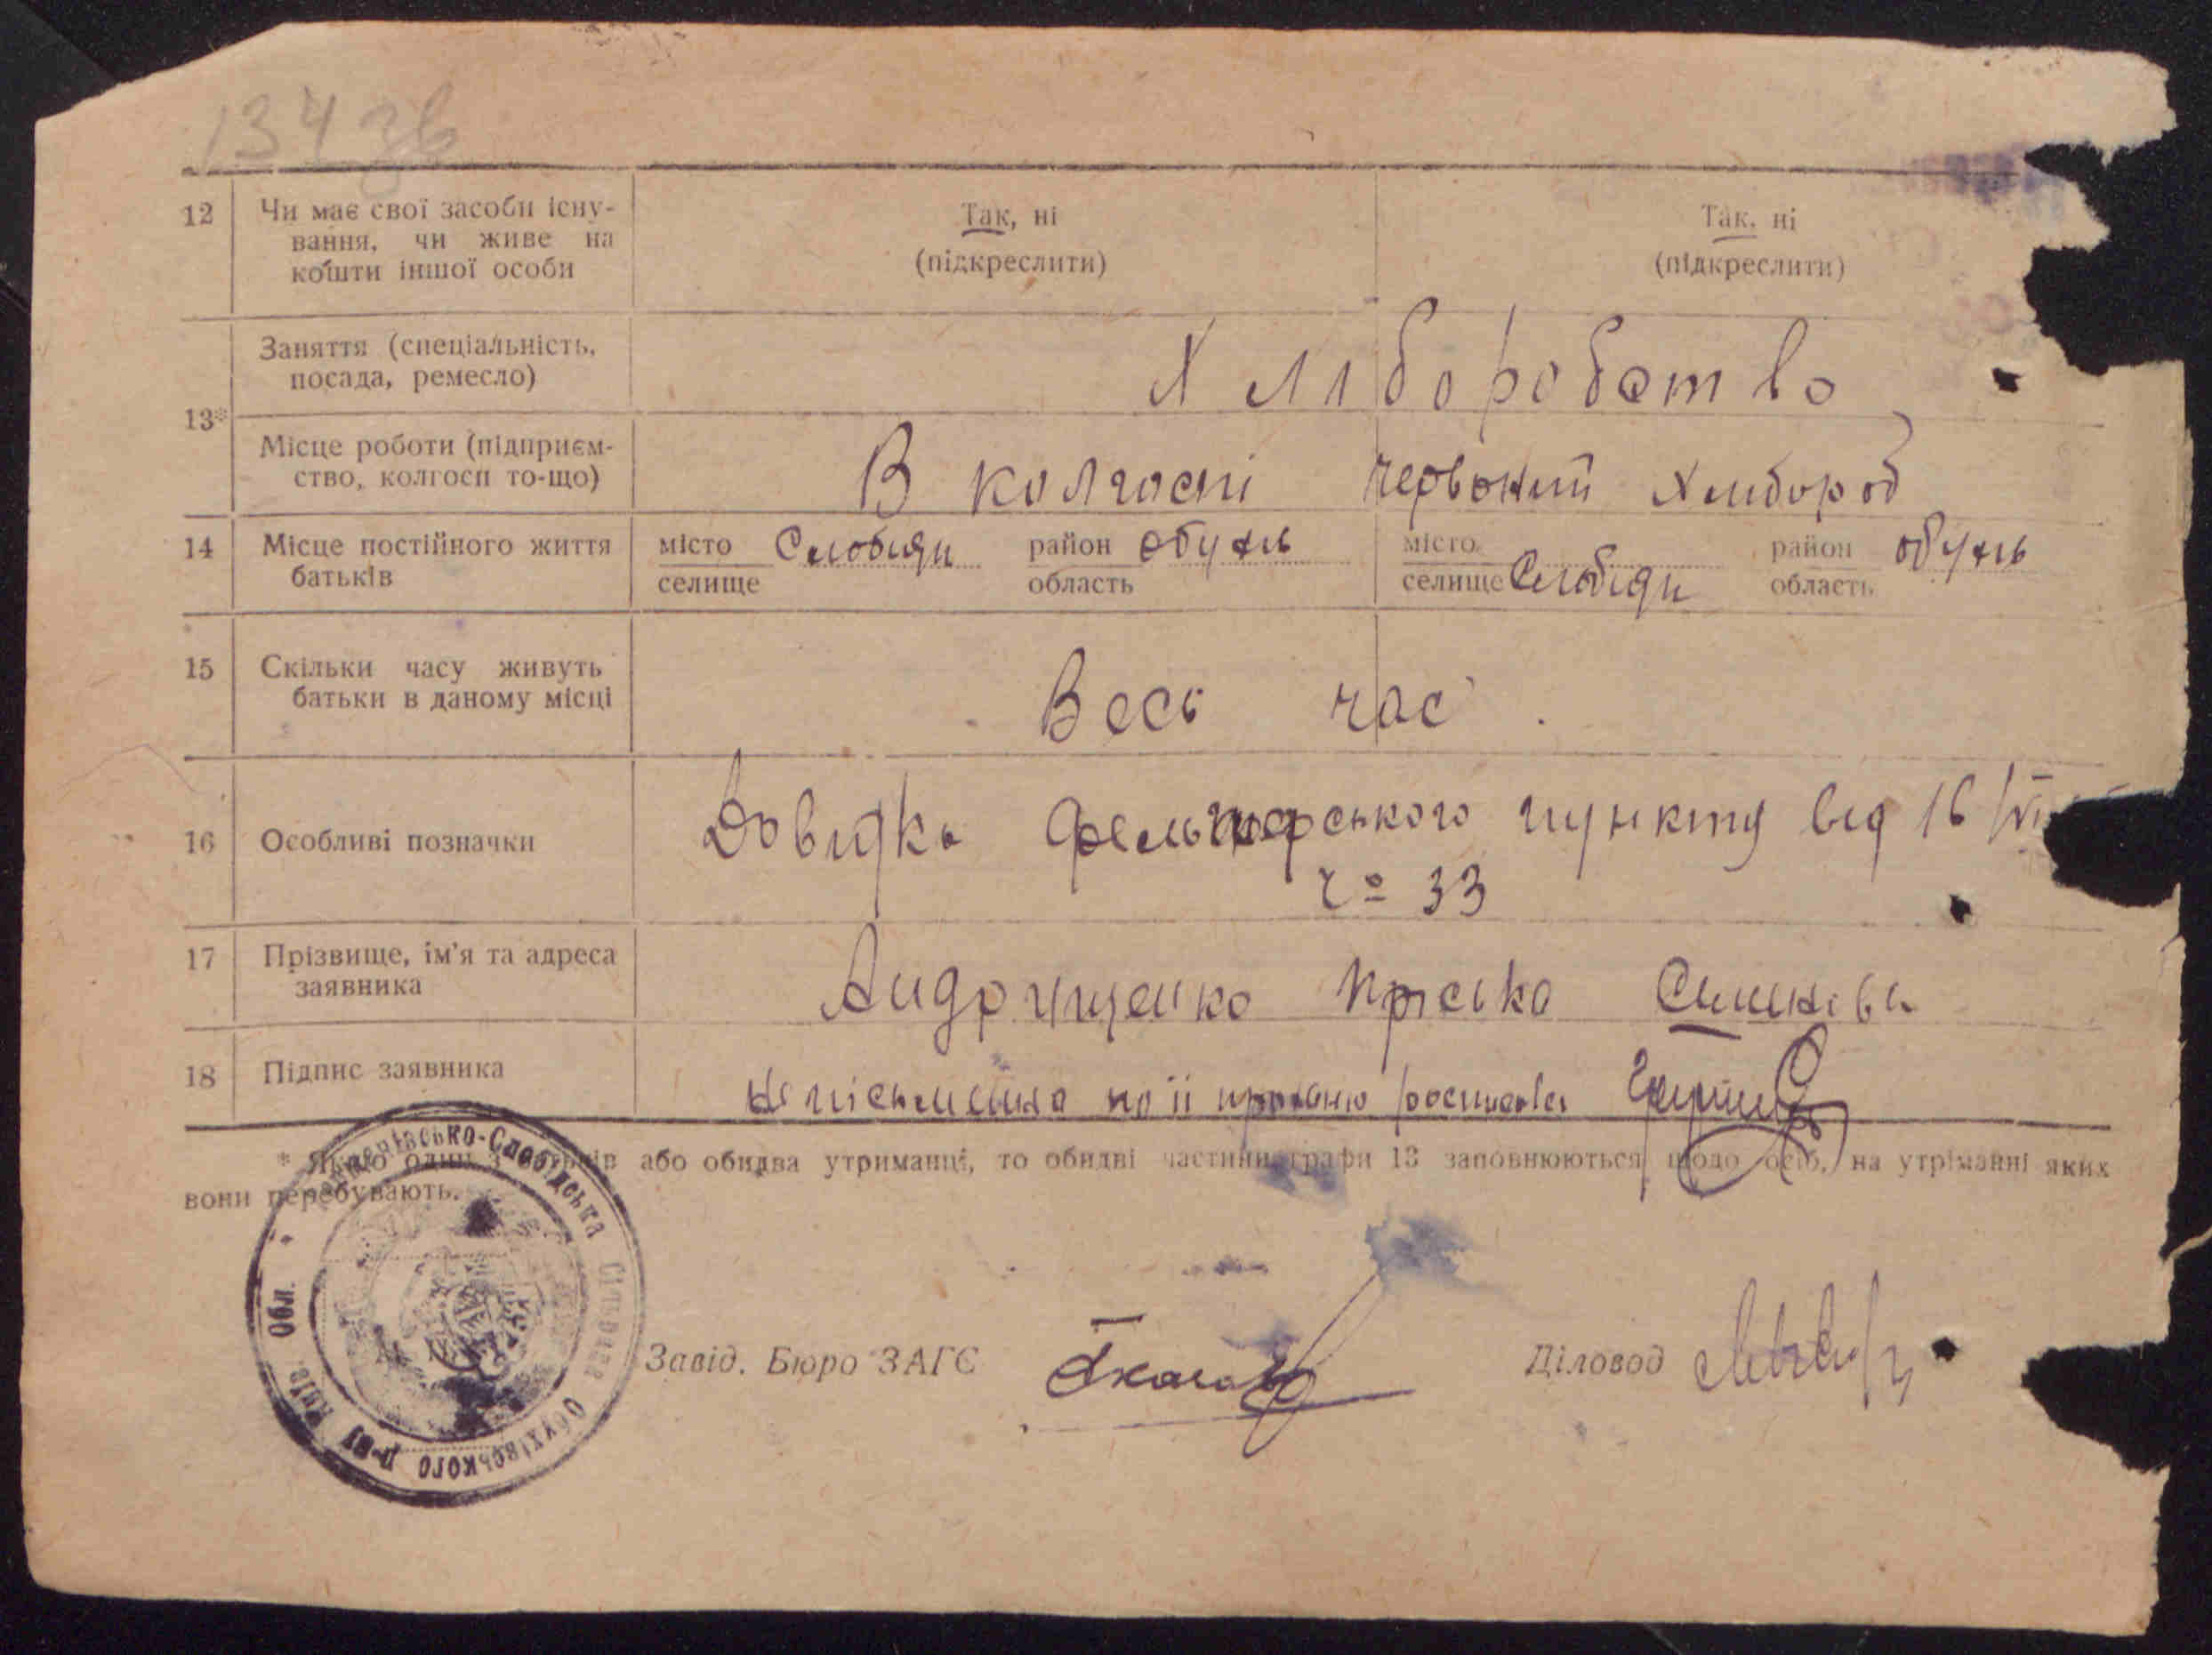 134 зв
12 Чи має свої засоби існу-
вання, чи живе на
кошти іншої особи
Так, ні
(підкреслити)
Так, ні
(підкреслити)
13* Заняття (спеціальність,
посада, ремесло)
Хліборобство
Місце роботи (підприєм-
ство, колгосп то-що)
В колгоспі червоний Хлибороб
14 Місце постійного життя
батьків
місто Слобиди район обухів
селище область
місто район обухів
селище Слобиди область
15 Скільки часу живуть
батьки в даному місці
Весь час.
16 Особливі позначки
Довидка фельшерського пункту від 16/VI
ч= 33
17 Прізвище, ім'я та адреса
заявника
Андрущенко Пріська
18 Підпис заявника
Неписьменна по її проханню росписався
* Якщо один з батьків або обидва утриманці, то обидві частини графи 13 заповнюються щодо осіб, на утріманні яких
вони перебувають.
Слобідська Сільрада Обухівського р-ну Київ. Обл.
Завід. Бюро ЗАГС
Діловод